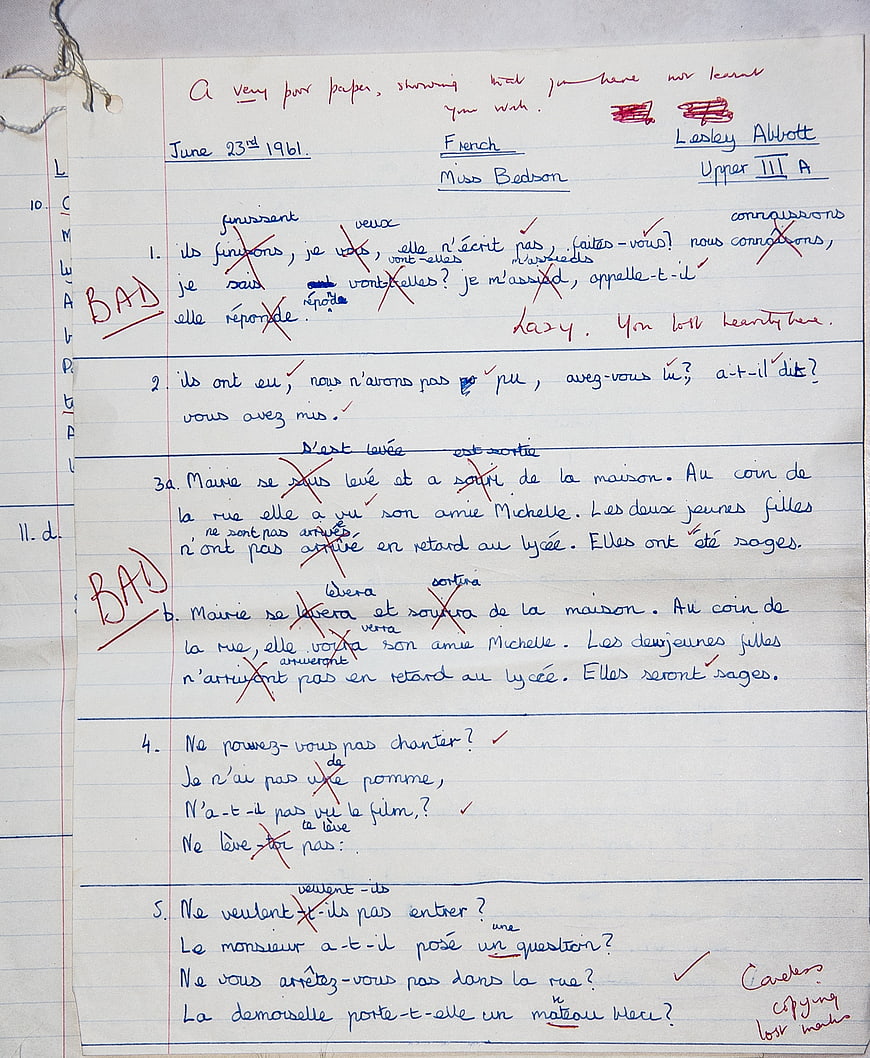 A very poor paper, showing that you have not learnt
your work.
June 23rd 1961.
French
Lesley Abbott
Miss Bedson
Upper III A
L
10.
finissent
veux
connaissons
1. ils finisons, je vous, elle n'écrit pas, faites-vous? nous connaisons,
vont-elles
m'assieds
je sais vont-t-elles? je m'assied, appelle-t-il
BAD
répond
elle réponde.
Lazy. You lost heavily here.
2. ils ont eu, nous n'avons pas pu, avez-vous lu? a-t-il dit?
vous avez mis.
s'est levée
est sortie
3a. Mairie se suis levé et a souri de la maison. Au coin de
la rue elle a vu son amie Michelle. Les deux jeunes filles
ne sont pas arrivées
n'ont pas arrivé en retard au lycée. Elles ont été sages.
11. d.
BAD
lèvera
sortira
b. Mairie se levera et sourira de la maison. Au coin de
verra
la rue, elle voira son amie Michelle. Les deux jeunes filles
arriveront
n'arrivont pas en retard au lycée. Elles seront sages.
4. Ne pouvez-vous pas chanter?
de
Je n'ai pas une pomme,
N'a-t-il pas vu le film,?
te lève
Ne lève-toi pas:
veulent-ils
5. Ne veulent-t-ils pas entrer?
une
Le monsieur a-t-il posé un question?
Ne vous arrêtez-vous pas dans la rue?
La demoiselle porte-t-elle un mateau bleu?
Careless
copying
lost marks